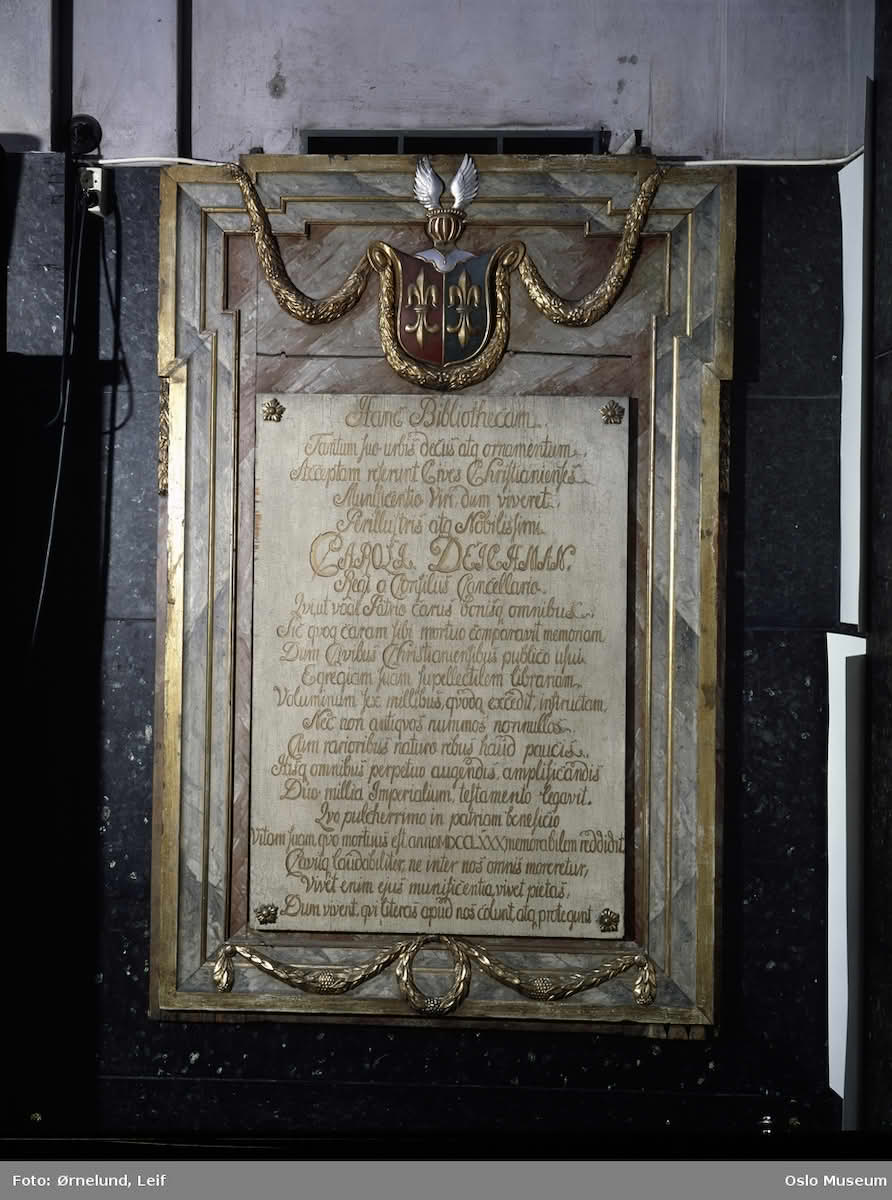 Hanc Bibliothecam.
Tantum suo urbis decus atq ornamentum.
Acceptam referunt Cives Christianienses
Munificentio Viri dum viveret.
Perillustris atq Nobilissimi.
CAROLI. DEICHMAN.
Regi a Consiliis Cancellario.
Qvi ut Patrio carus bonisq omnibus.
Sic qvoq caram sibi mortuo comparavit memoriam
Dum Civibus Christianiensibus publico usui.
Egregiam suam supellectilem librariam,
Voluminum sex millibus, qvodq excedit, instructam,
Nec non antiqvos nummos nonnullos.
Cum rarioribus naturo rebus haud paucis.
Hisq omnibus perpetuo augendis, amplificandis
Duo millia Imperialium, testamento legavit.
Qvo pulcherrimo in patriam beneficio
Vitam suam, qvo mortuus est anno MDCCLXXX memorabilem reddidit.
laudabiliter, ne inter nos omnis moreretur,
Vivet enim ejus munificentia, vivet pietas,
Dum vivent, qvi literas apud nos colunt, atq protegunt
Foto: Ørnelund, Leif
Oslo Museum